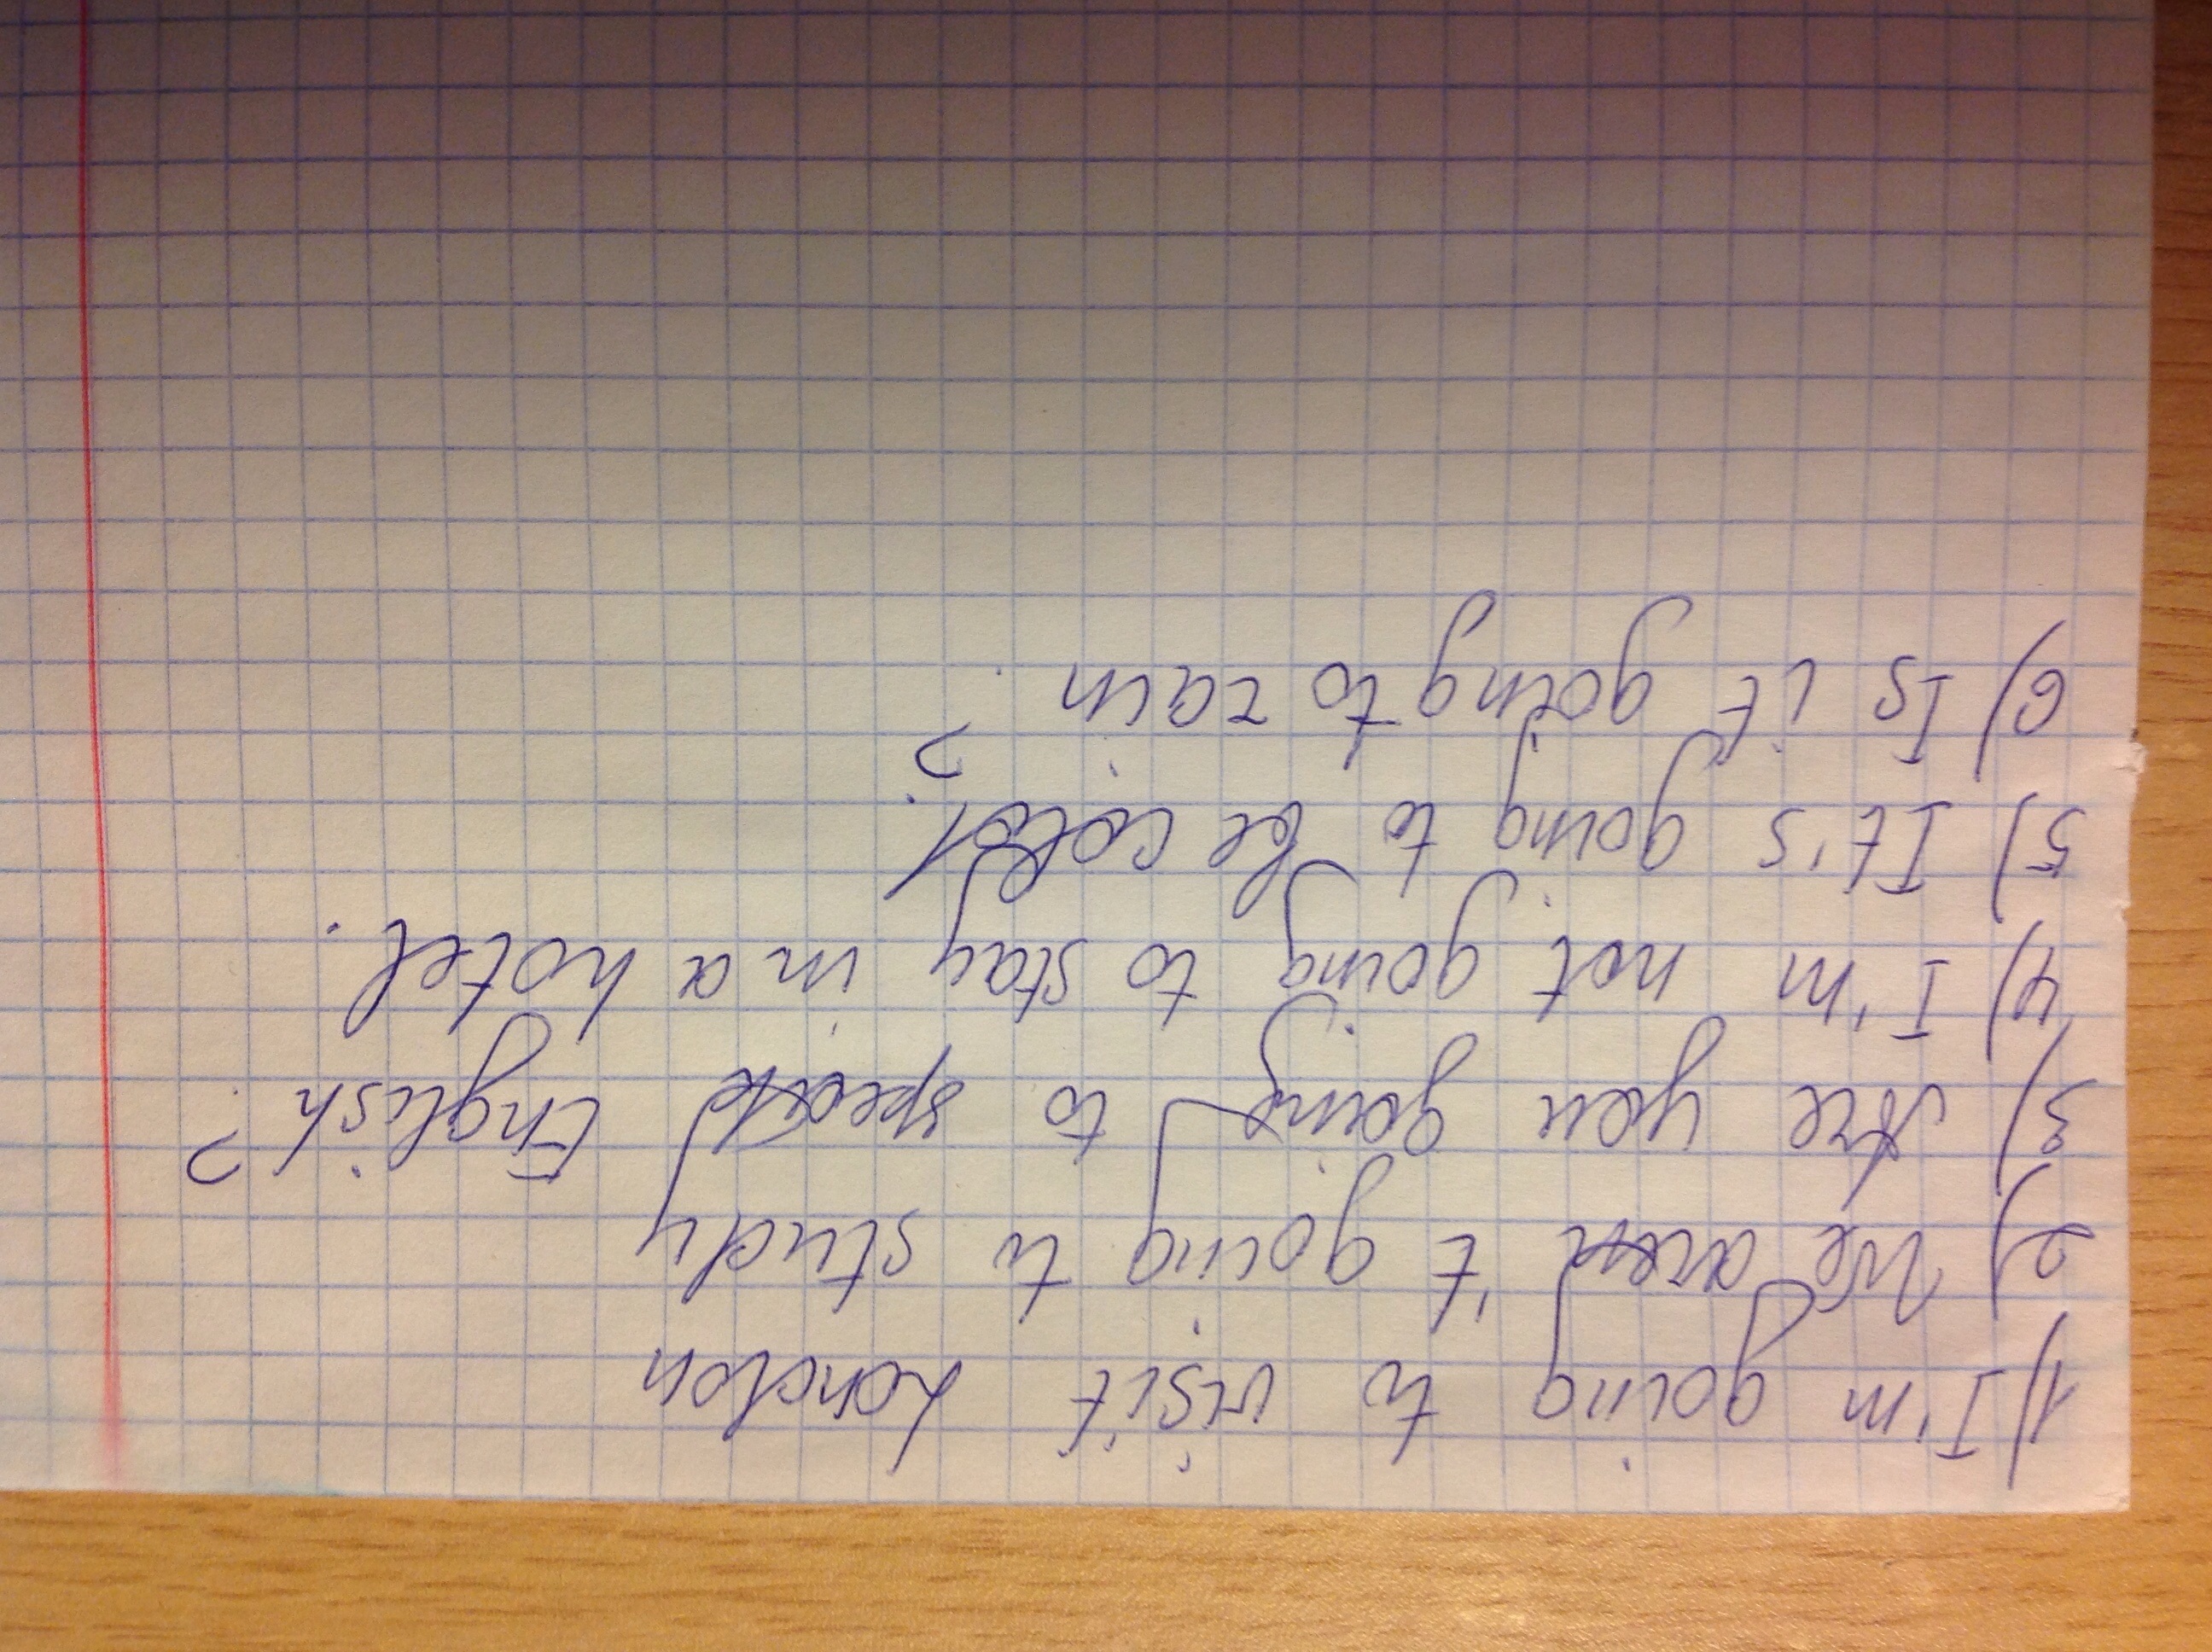 1) I'm going to visit London
2) We aren't going to study
3) Are you going to speak English?
4) I'm not going to stay in a hotel.
5) It's going to be cold.
6) Is it going to rain?